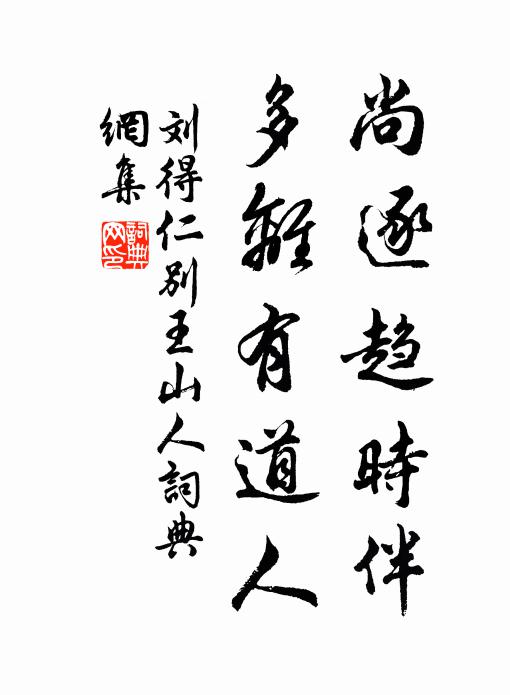 尚逐趋時伴
多離有道人
刘得仁别王山人詞典
網集
詞典網印